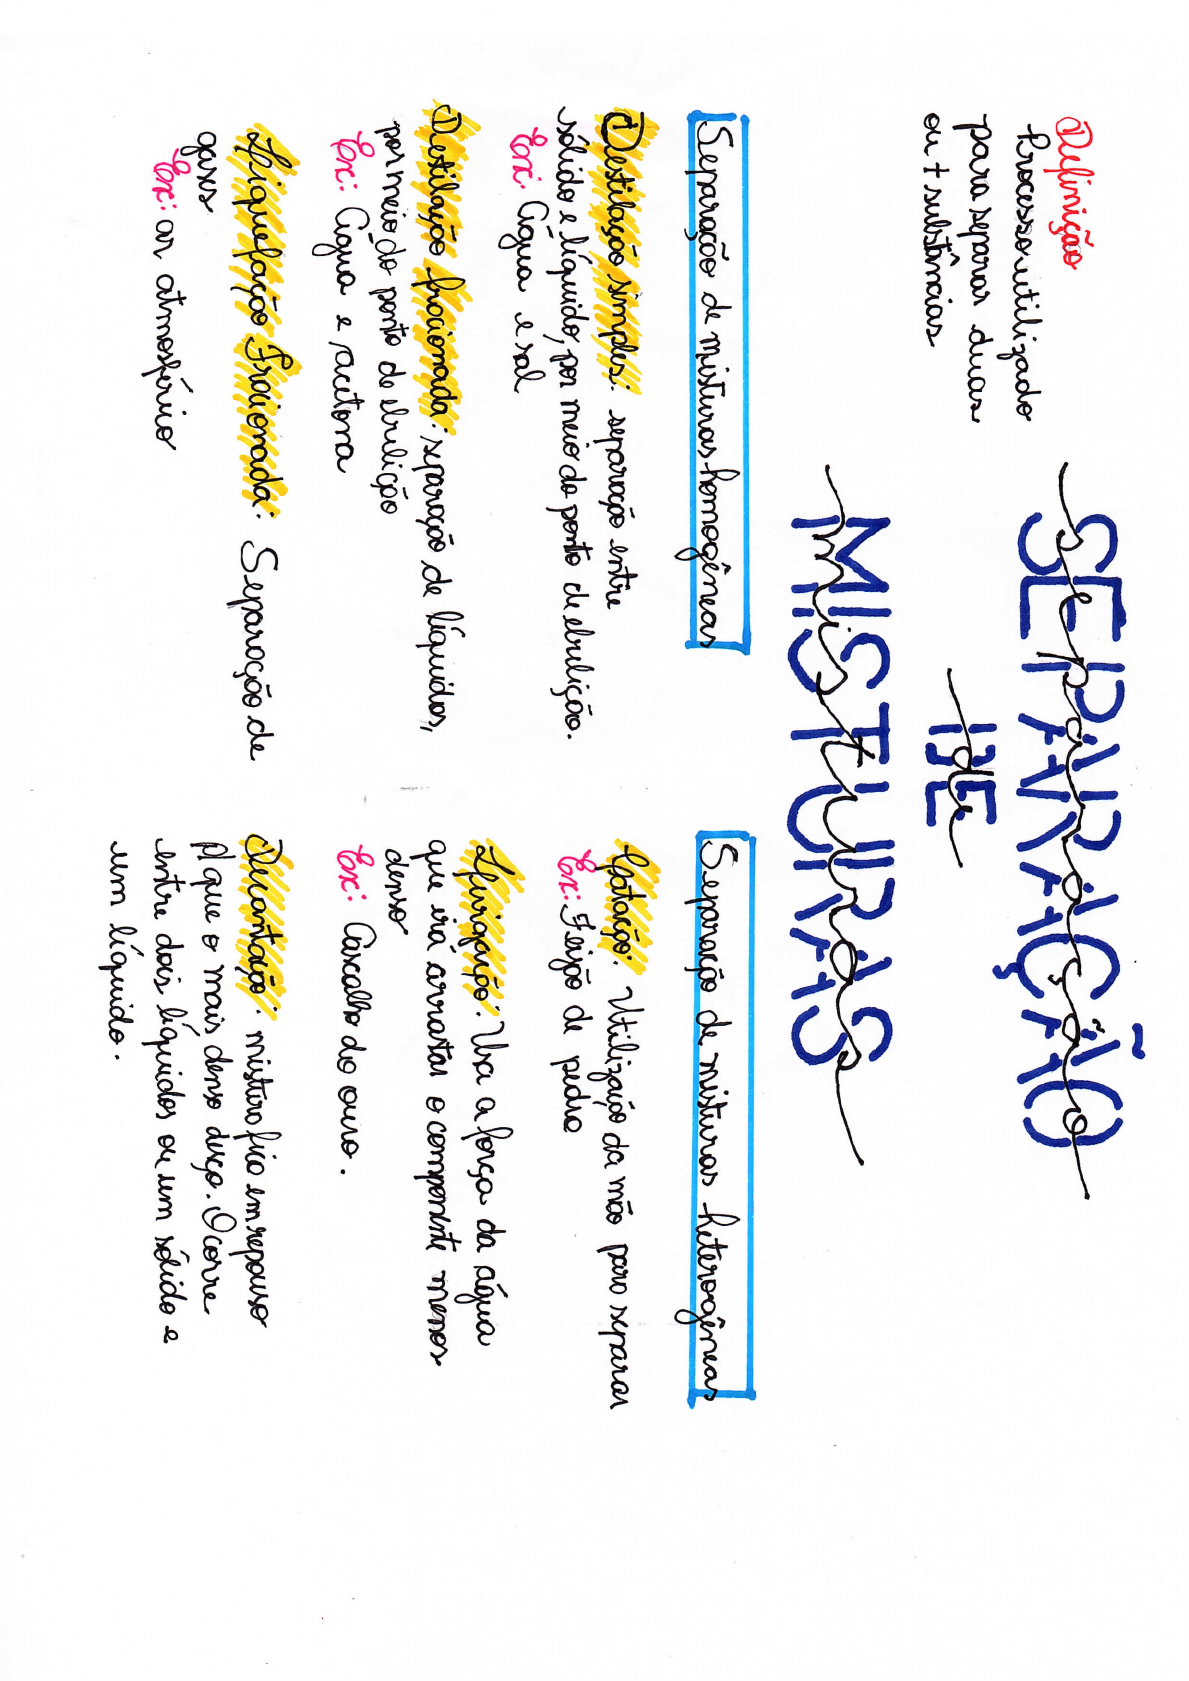 SEPARAÇÃO
separação
DE
de
MISTURAS
misturas
Definição
Processo utilizado
para separar duas
ou + substâncias
Separação de misturas homogêneas
Destilação simples: separação entre
sólido e líquido, por meio do ponto de ebulição.
Ex: Água e sal
Destilação fracionada: separação de líquidos,
por meio do ponto de ebulição
Ex: Água e acetona
Liquefação Fracionada: Separação de
gases
Ex: ar atmosférico
Separação de misturas heterogêneas
Catação: Utilização da mão para separar
Ex: Feijão de pedra
Levigação: Usa a força da água
que irá arrastar o componente menos
denso
Ex: Cascalho do ouro.
Decantação: mistura fica em repouso
p/ que o mais denso desça. Ocorre
entre dois líquidos ou um sólido e
um líquido.